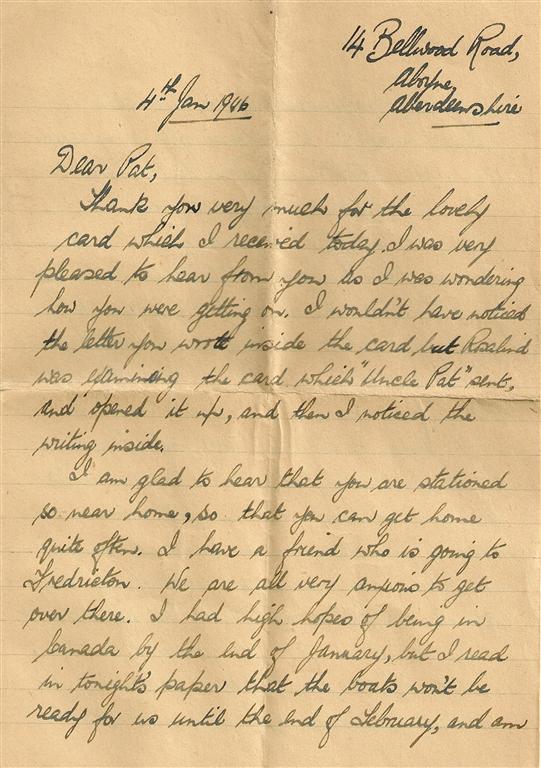 14 Bellwood Road,
Aboyne,
Aberdeenshire
4th Jan 1946
Dear Pat,
Thank you very much for the lovely
card which I received today. I was very
pleased to hear from you as I was wondering
how you were getting on. I wouldn't have noticed
the letter you wrote inside the card but Rosalind
was examining the card which "Uncle Pat" sent,
and opened it up, and then I noticed the
writing inside.
I am glad to hear that you are stationed
so near home, so that you can get home
quite often. I have a friend who is going to
Fredricton. We are all very anxious to get
over there. I had high hopes of being in
Canada by the end of January, but I read
in tonight's paper that the boats won't be
ready for us until the end of February, and am